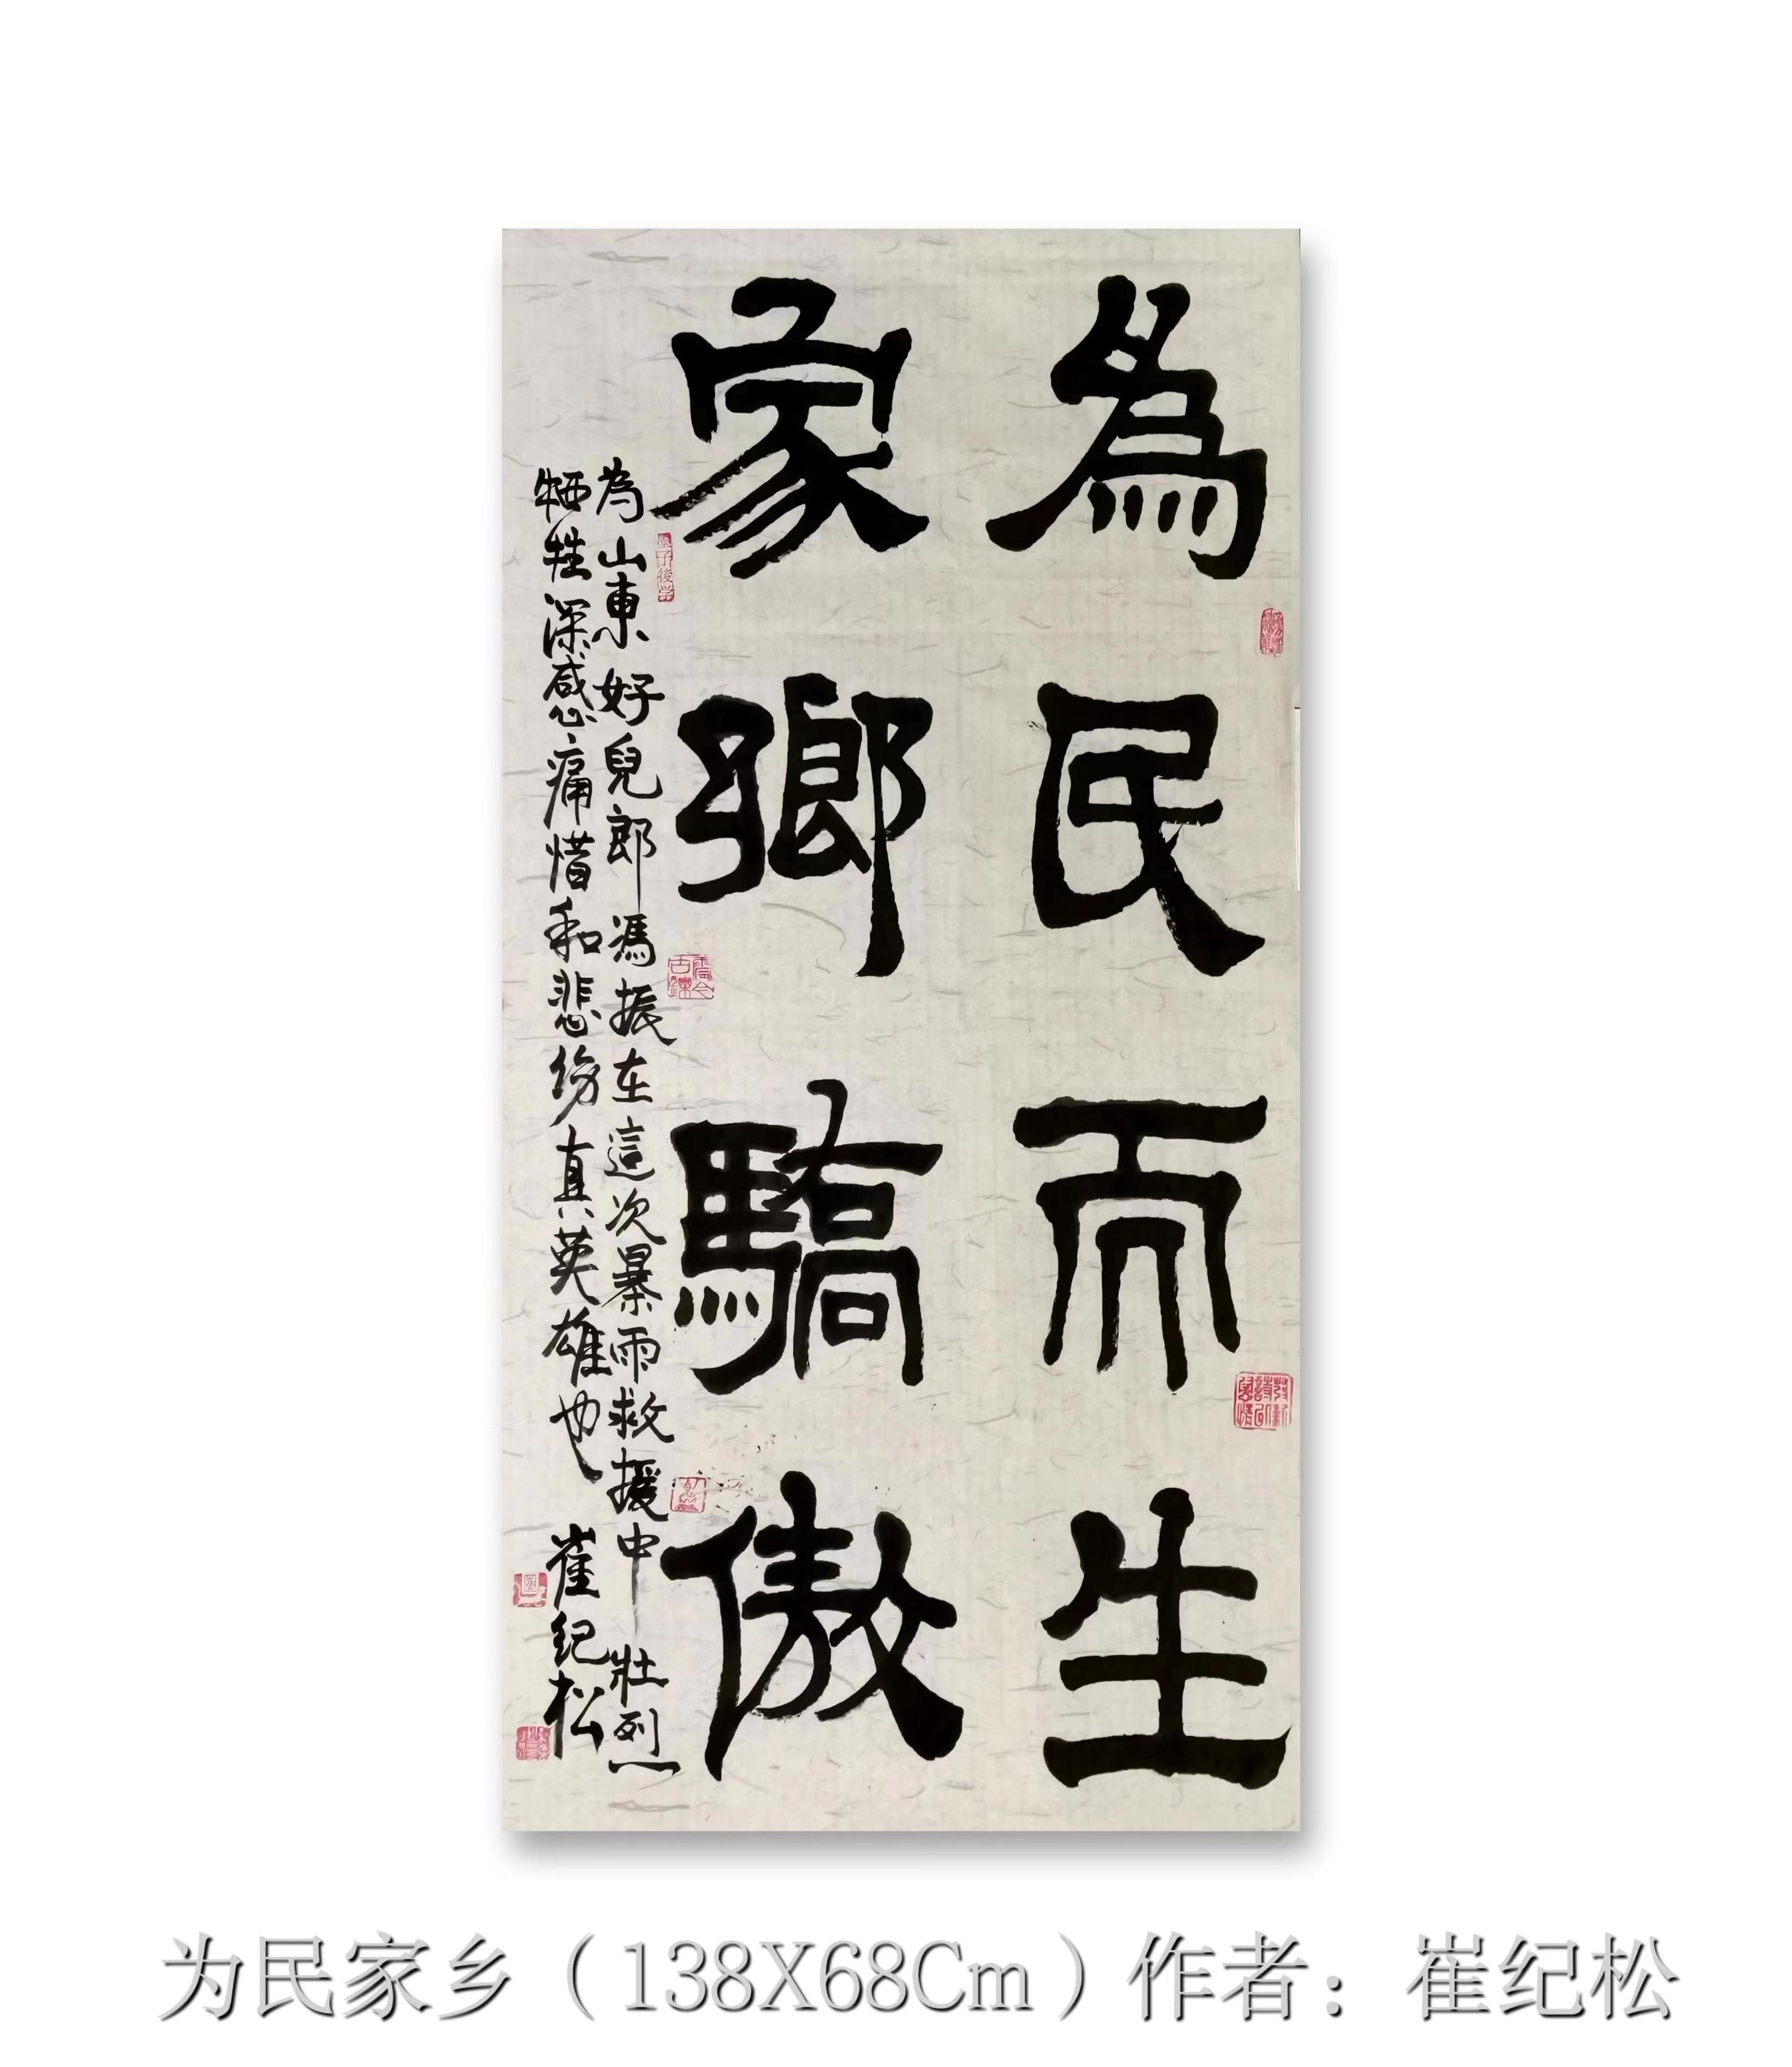 為民而生
家鄉驕傲
為山東好兒郎馮振在這次暴雨救援中壯烈
犧牲深感痛惜和悲伤真英雄也 崔纪松
为民家乡（138X68Cm）作者：崔纪松